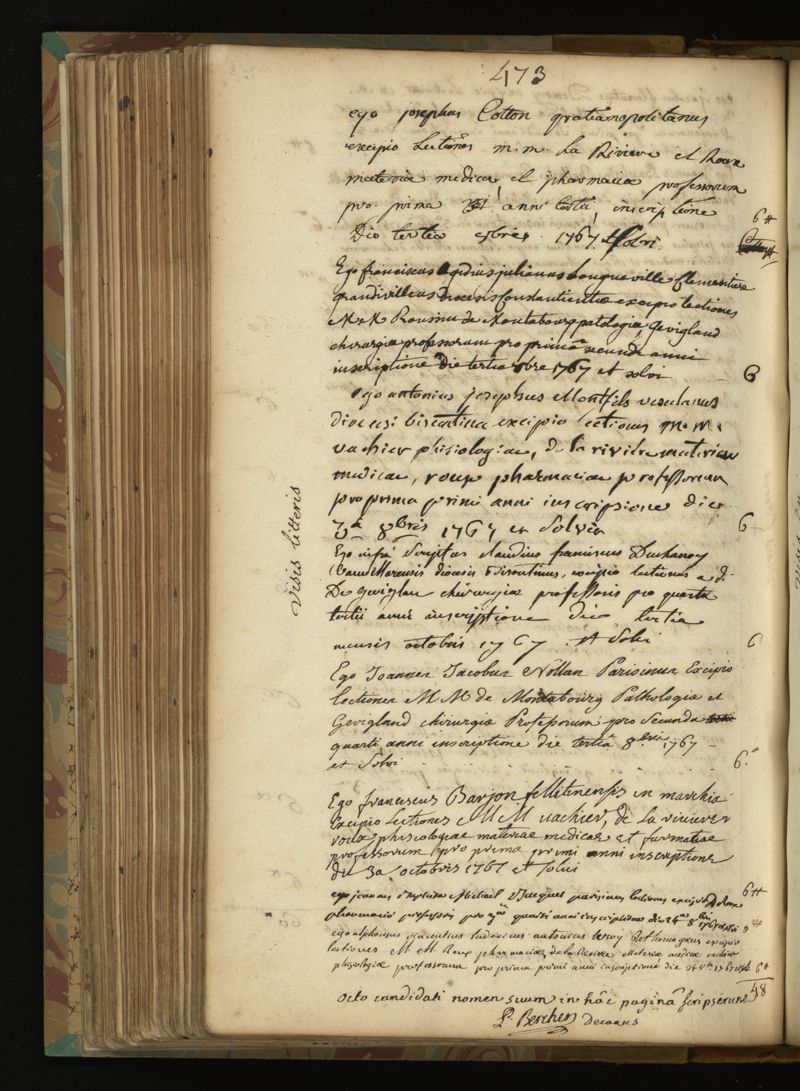 473
ego josephus Cotton gratianopolitanus
excipio Lectiones m.m. La Riviere et Roux
materiæ medicæ, et pharmaciæ professorum
pro prima anni inscriptione
Die tertia 8bris 1767 et solvi
6 ₶
Ego franciscus julianus Longueville Clementine
grandivillæus diœcesis Constantientiæ excipio lectiones
M M de Montabourg patologiæ, Gevigland
chirurgiæ professorum pro prima secundi anni
inscriptione die tertia 8bre 1767 et solvi
6
Ego antonius josephus Montfils vesulanus
diocesis bisuntinæ excipio lectiones m. m.
vachier phisiologiae, de la rivière materiæ
medicae, roux pharmaciae professorum
pro prima primi anni inscriptione die
3a 8bris 1767 et Solvi
6
Ego infra Scriptus claudius franciscus Duchanoy
diocesis Bisuntinus, excipio lectiones d.
De Gevigland chirurgiæ professoris pro quarta
tertii anni inscriptione die tertia
mensis octobris 1767 et Solvi
6
Visis litteris
Ego Joannes Jacobus Nollan Parisinus Excipio
lectiones M M de Montabourg Pathologiæ et
Gevigland chirurgiæ Professorum pro Secunda
quarti anni inscriptione die tertiâ 8bris 1767
et Solvi
6.
Ego franciscus Barjon fellitinensis in marchia
Excipio Lectiones M M vachier, de La riviere
roux phisiologiae materiae medicae et farmatiae
professorum pro prima primi anni inscriptione
die 3a octobris 1767 et Solvi
6 ₶
ego joannes baptista Michael Jacques parisinus lectiones excipio D Roux
pharmaciæ professoris pro quarti anni inscriptione die 24a 8bris 1767 et solvi
ego alphonsus vincentius ludovicus antonius leroy Rothomagæus excipio
lectiones M M Roux pharmaciæ, de la Riviere Materiæ medicæ vachier
phisiologiæ professorum pro prima primi anni inscriptione die 1767 et solvi 6 ₶
48
octo candidati nomen suum in hâc paginâ scripserunt
Berchen Decanus